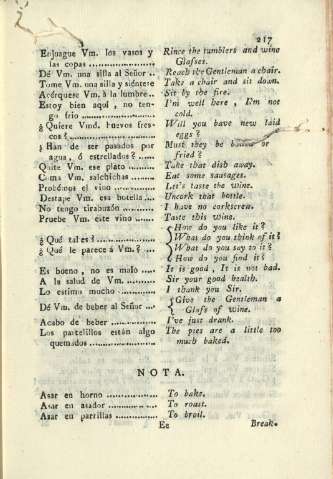 217
Enjuague Vm. los vasos y Rince the tumblers and wine
las copas .................. Glasses.
Dé Vm. una silla al Señor .. Reach the Gentleman a chair.
Tome Vm. una silla y siéntese Take a chair and sit down.
Acérquese Vm. á la lumbre... Sit by the fire.
Estoy bien aquí , no ten- I'm well here , I'm not
go frio .................. cold.
¿ Quiere Vmd. huevos fres- Will you have new laid
cos ? .................. eggs ?
¿ Han de ser pasados por Must they be or
agua , ó estrellados ? ...... fried ?
Quite Vm. ese plato ......... Take that dish away.
Coma Vm. salchichas ......... Eat some sausages.
Probémos el vino ............ Let's taste the wine.
Destape Vm. esa botella..... Uncork that bottle.
No tengo tirabuzón ......... I have no corkscrew.
Pruebe Vm. este vino ...... Taste this wine.
¿ Qué tal es ? .................. How do you like it ?
¿ Qué le parece á Vm. ? ... What do you think of it ?
What do you say to it ?
How do you find it ?
Es bueno , no es malo ..... It is good , It is not bad.
A la salud de Vm. ......... Sir your good health.
Lo estimo mucho ............ I thank you Sir.
Dé Vm. de beber al Señor ... Give the Gentleman a
Glass of wine.
Acabo de beber ............ I've just drank.
Los pastelillos están algo The pies are a little too
quemados .................. much baked.
NOTA.
Asar en horno .................. To bake.
Asar en asador .................. To roast.
Asar en parrillas ............... To broil.
Ee Break.